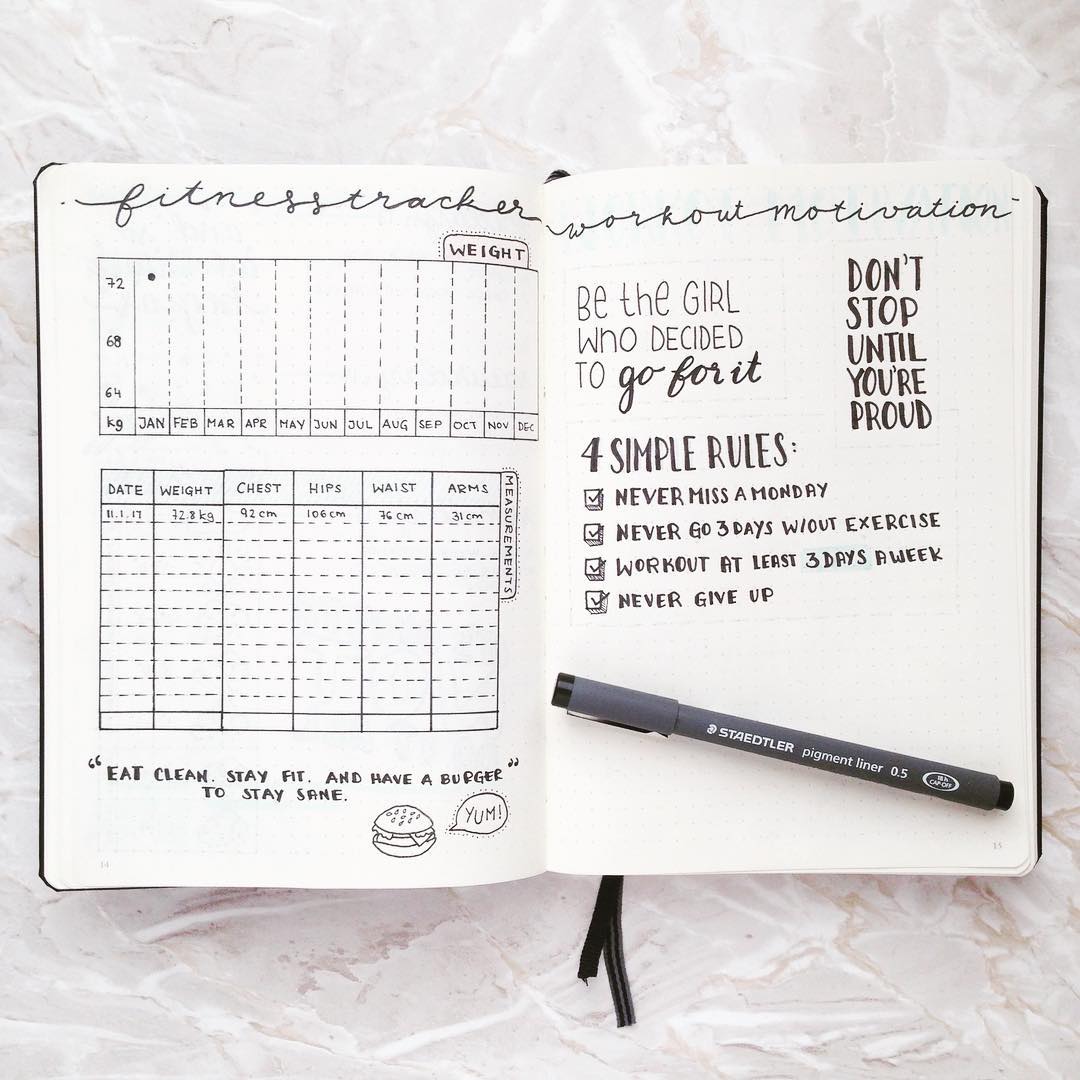 fitnesstracker
WEIGHT
72
68
64
kg JAN FEB MAR APR MAY JUN JUL AUG SEP OCT NOV DEC
MEASUREMENTS
DATE WEIGHT CHEST HIPS WAIST ARMS
11.1.17 72.8kg 92cm 106cm 76cm 31cm
"EAT CLEAN. STAY FIT. AND HAVE A BURGER"
TO STAY SANE.
YUM!
14
workout motivation
Be the GIRL
WhO DECIDED
TO go for it
DON'T
STOP
UNTIL
YOU'RE
PROUD
4 SIMPLE RULES:
NEVER MISS A MONDAY
NEVER GO 3 DAYS W/OUT EXERCISE
WORKOUT AT LEAST 3 DAYS A WEEK
NEVER GIVE UP
STAEDTLER pigment liner 0.5
18 h
CAP-OFF
15